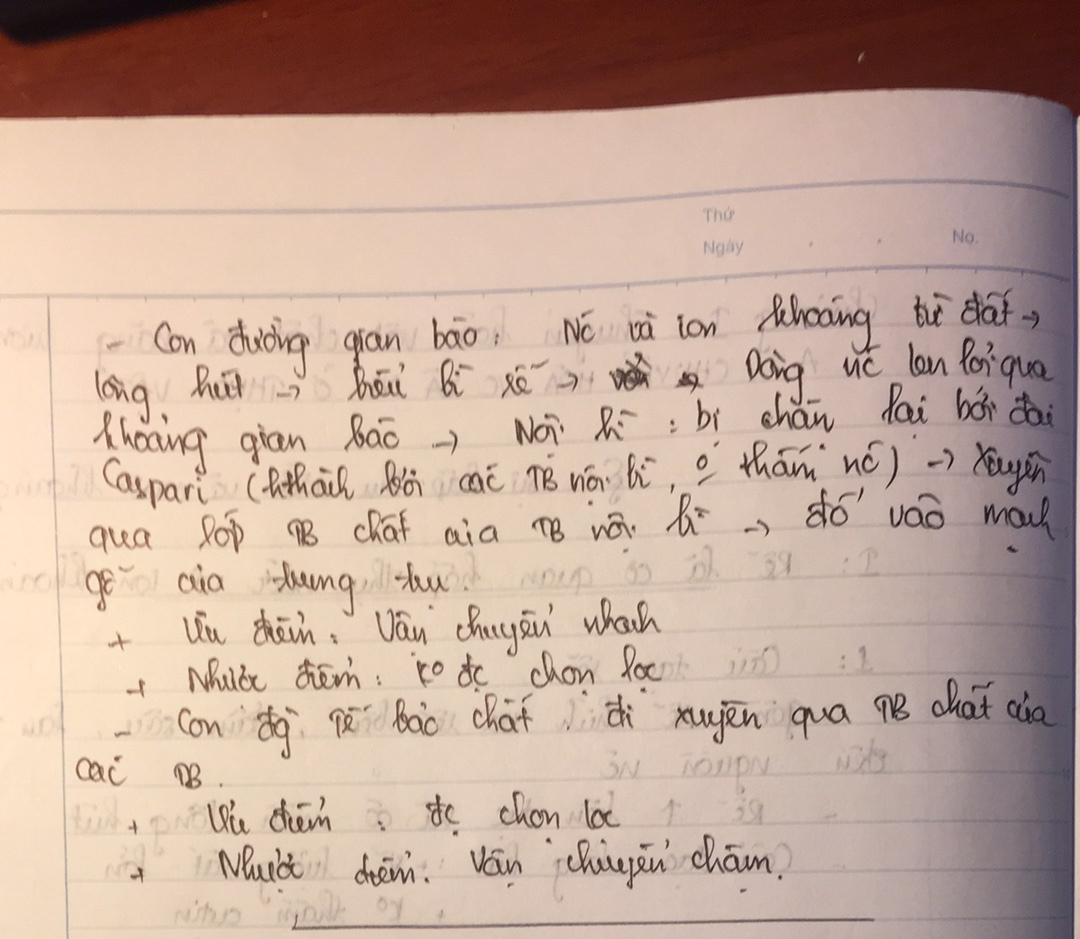 Thứ
Ngày No.
- Con đường gian bào: Nc và ion khoáng từ đất →
lông hút → biểu bì rễ → Dòng nc len lỏi qua
khoảng gian bào → Nội bì: bị chặn lại bởi đai
Caspari (hthành bởi các TB nội bì, thấm nc) → Xuyên
qua lớp TB chất của TB nội bì → đổ vào mạch
gỗ của trung trụ.
+ Ưu điểm: Vận chuyển nhanh
+ Nhược điểm: ko đc chọn lọc
- Con đg tế bào chất: đi xuyên qua TB chất của
các TB.
+ Ưu điểm: đc chọn lọc
+ Nhược điểm: Vận chuyển chậm.